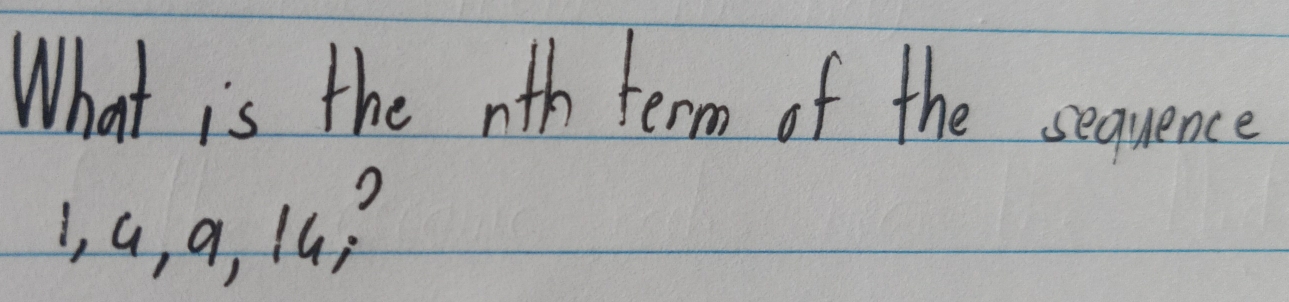 What is the nth term of the sequence
1, 4, 9, 14;?